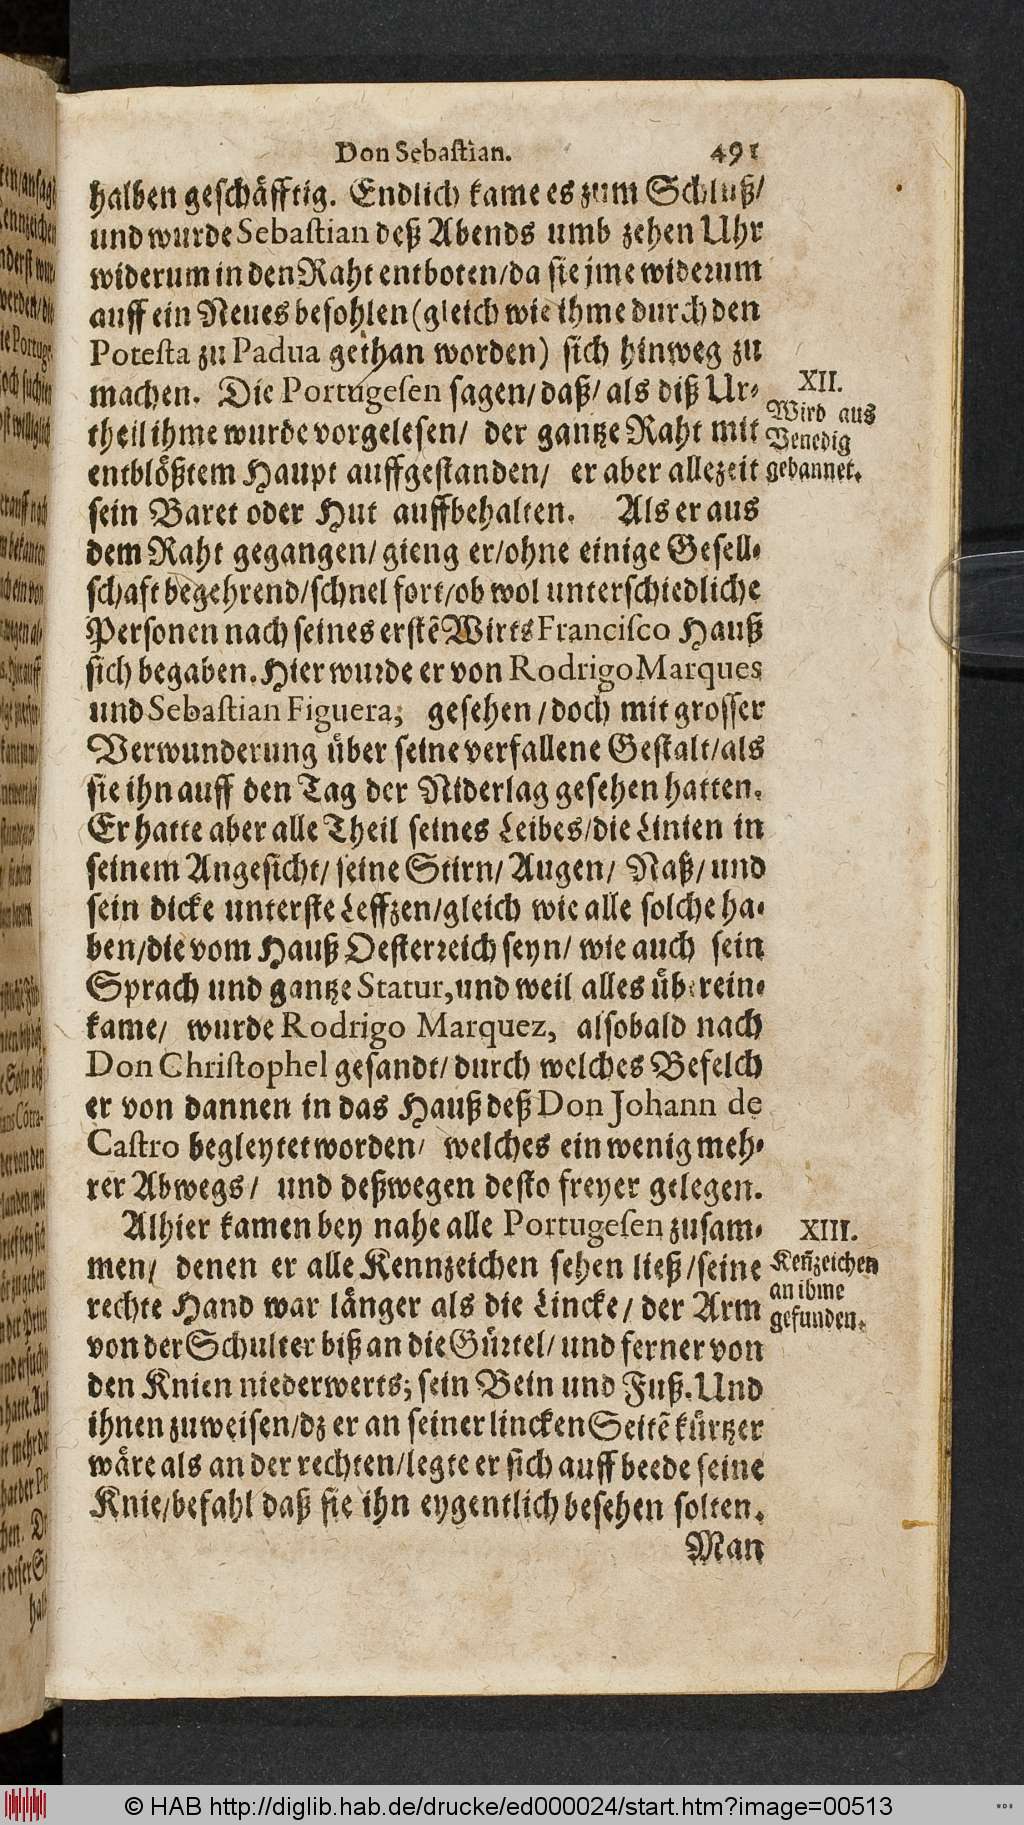 Don Sebastian. 491
halben geschäfftig. Endlich kame es zum Schluß/
und wurde Sebastian deß Abends umb zehen Uhr
widerum in den Raht entboten/da sie jme widerum
auff ein Neues befohlen (gleich wie ihme durch den
Potesta zu Padua gethan worden) sich hinweg zu
machen. Die Portugesen sagen/ daß/ als diß Ur-
theil ihme wurde vorgelesen/ der gantze Raht mit
entblößtem Haupt auffgestanden/ er aber allezeit
sein Baret oder Hut auffbehalten. Als er aus
dem Raht gegangen/ gieng er/ohne einige Gesell-
schaft begehrend/schnel fort/ob wol unterschiedliche
Personen nach seines erstẽ Wirts Francisco Hauß
sich begaben. Hier wurde er von Rodrigo Marques
und Sebastian Figuera, gesehen/doch mit grosser
Verwunderung über seine verfallene Gestalt/als
sie ihn auff den Tag der Niderlag gesehen hatten.
Er hatte aber alle Theil seines Leibes/die Linien in
seinem Angesicht/ seine Stirn/ Augen/ Naß/ und
sein dicke unterste Leffzen/gleich wie alle solche ha-
ben/die vom Hauß Oesterreich seyn/ wie auch sein
Sprach und gantze Statur, und weil alles überein-
kame/ wurde Rodrigo Marquez, alsobald nach
Don Christophel gesandt/ durch welches Befelch
er von dannen in das Hauß deß Don Johann de
Castro begleytet worden/ welches ein wenig meh-
rer Abwegs/ und deßwegen desto freyer gelegen.
Alhier kamen bey nahe alle Portugesen zusam-
men/ denen er alle Kennzeichen sehen ließ/seine
rechte Hand war länger als die Lincke/ der Arm
von der Schulter biß an die Gürtel/ und ferner von
den Knien niederwerts; sein Bein und Fuß. Und
ihnen zuweisen/dz er an seiner lincken Seitẽ kürtzer
wäre als an der rechten/legte er sich auff beede seine
Knie/befahl daß sie ihn eygentlich besehen solten.
Man
XII.
Wird aus
Venedig
gebannet.
XIII.
Keñzeichen
an ihme
gefunden.
© HAB http://diglib.hab.de/drucke/ed000024/start.htm?image=00513